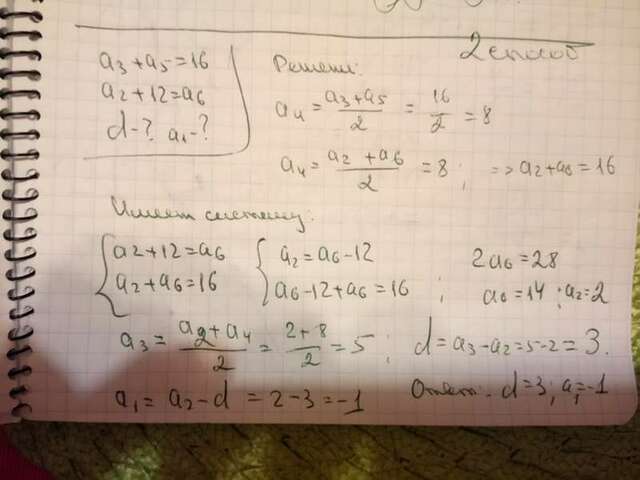 2 способ
a3 + a5 = 16
a2 + 12 = a6
d-? a1-?
Решение:
a4 = (a3 + a5)/2 = 16/2 = 8
a4 = (a2 + a6)/2 = 8; => a2 + a6 = 16
Имеем систему:
{ a2 + 12 = a6 { a2 = a6 - 12 2a6 = 28
{ a2 + a6 = 16 { a6 - 12 + a6 = 16 ; a6 = 14; a2 = 2
a3 = (a2 + a4)/2 = (2 + 8)/2 = 5; d = a3 - a2 = 5 - 2 = 3.
a1 = a2 - d = 2 - 3 = -1 Ответ: d = 3; a1 = -1